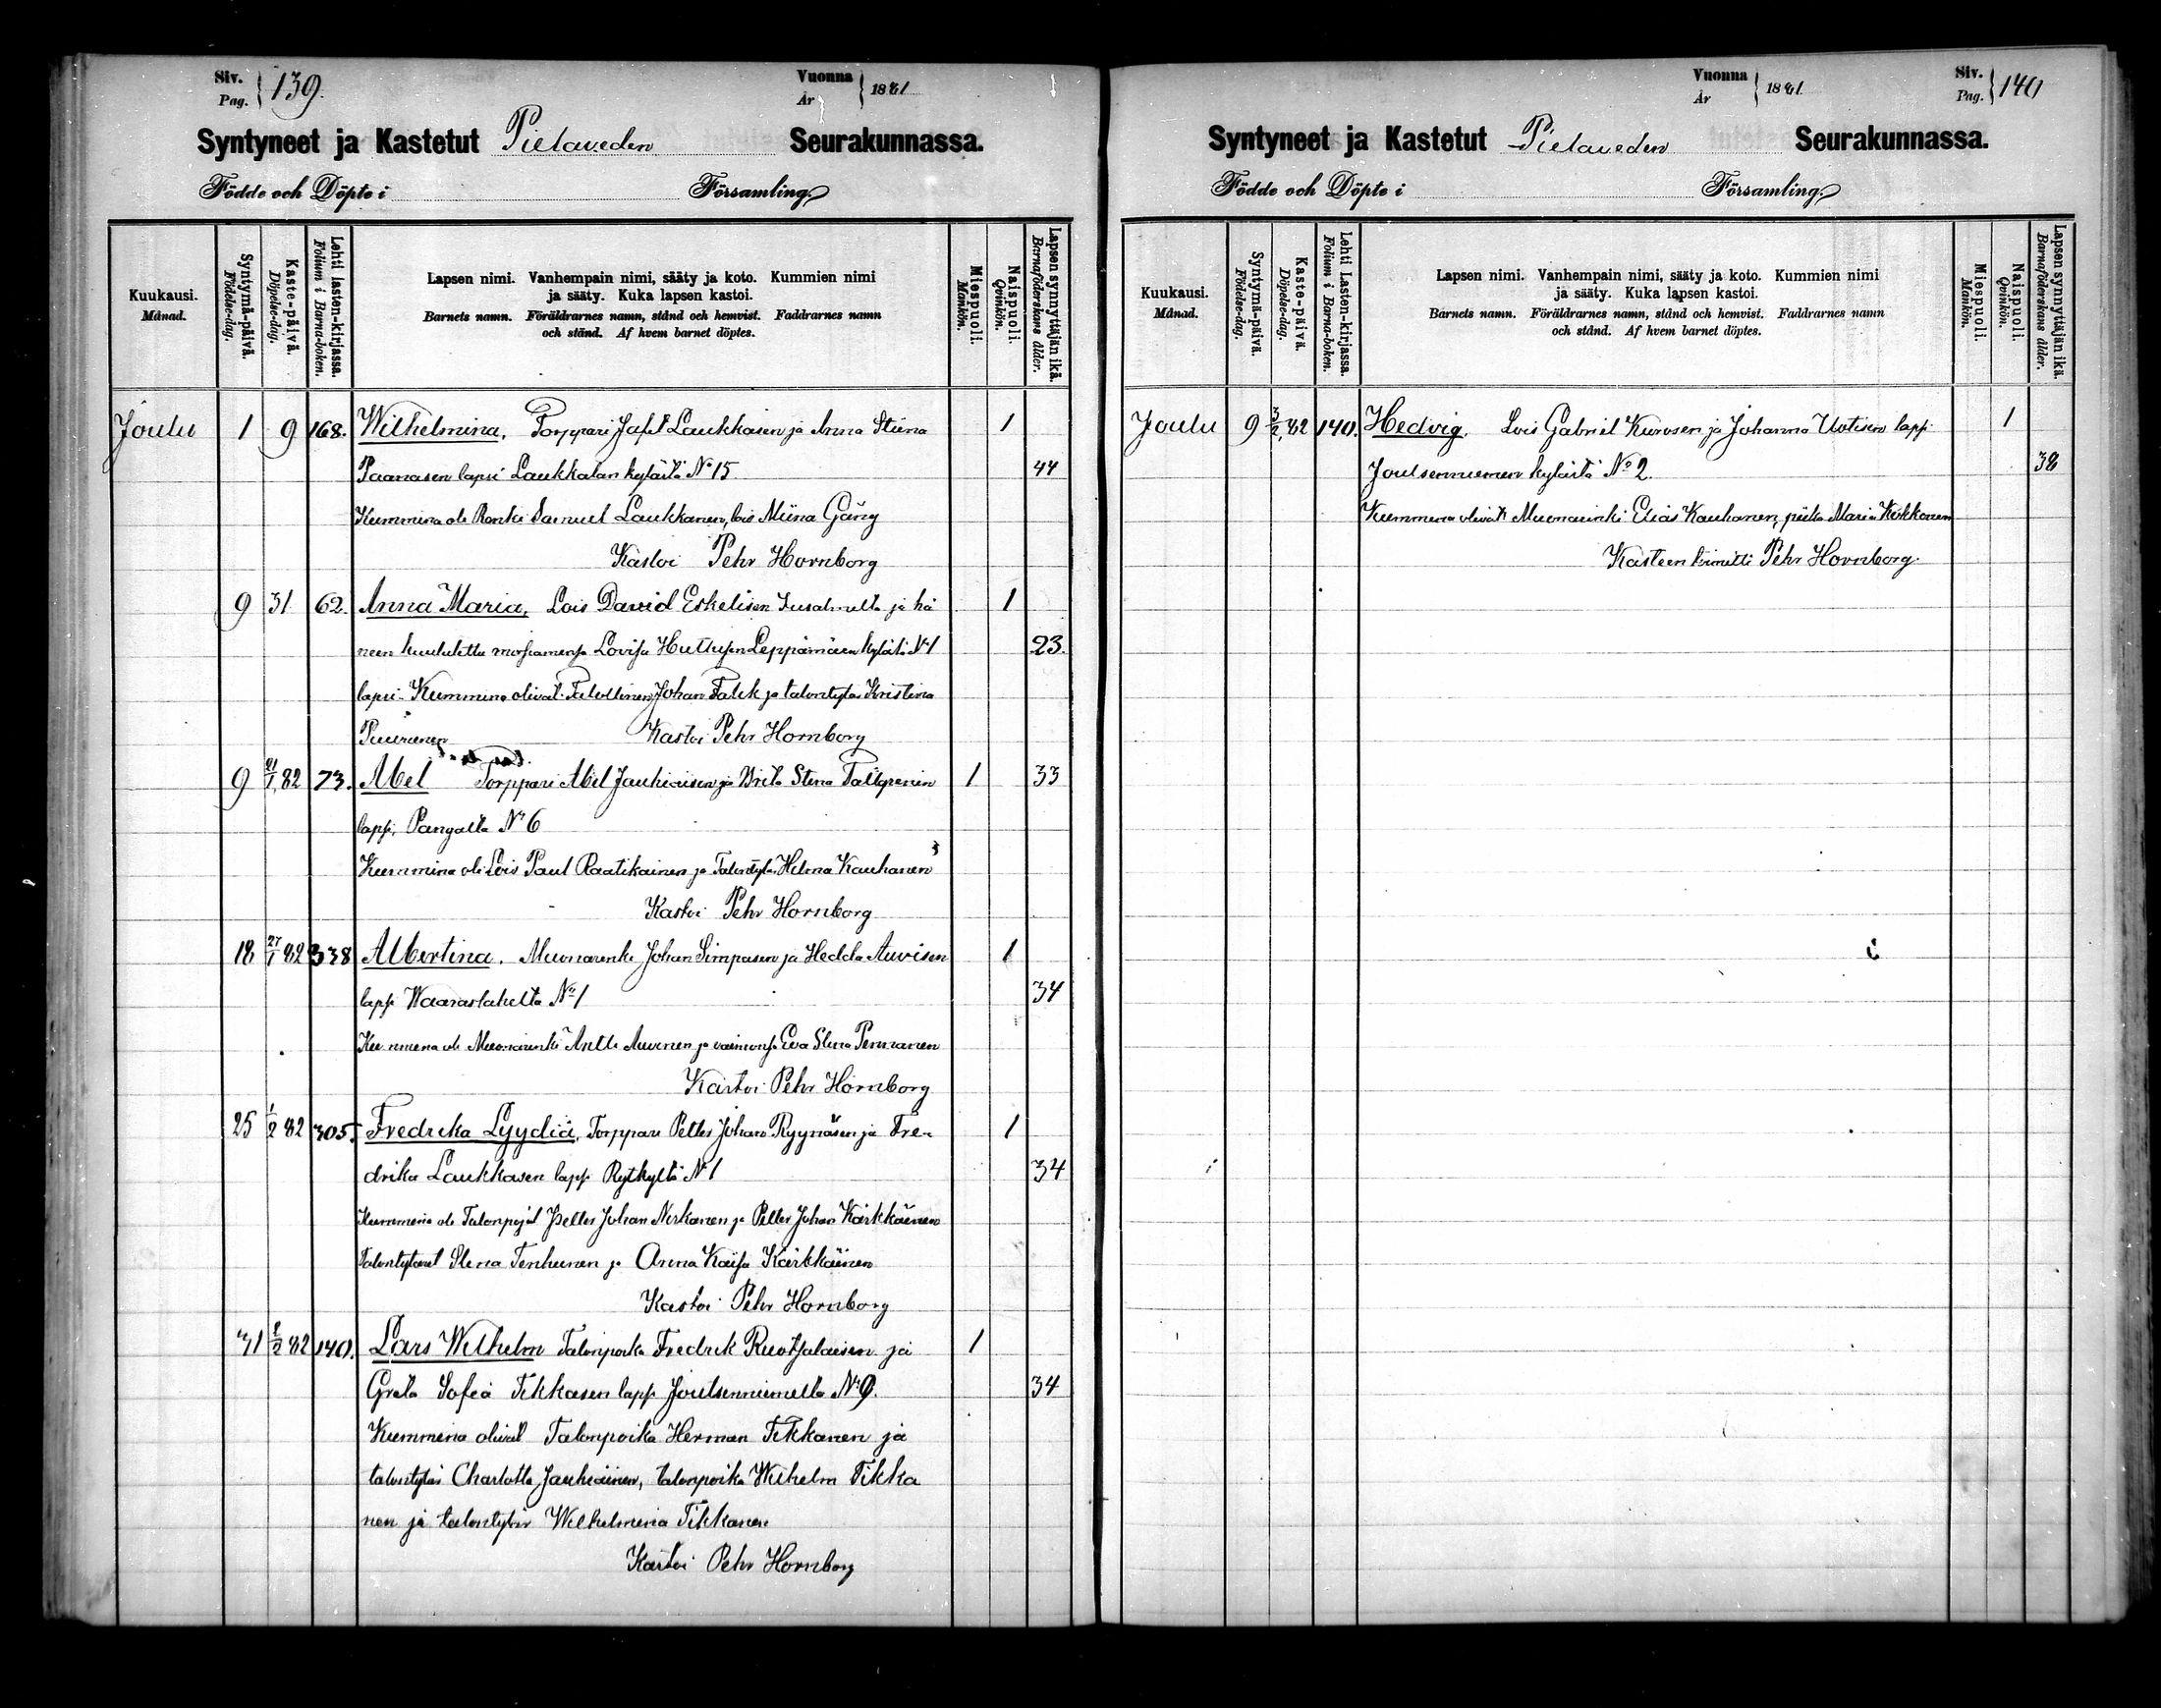 Siv. Pag. 139.
Vuonna År 1881
Syntyneet ja Kastetut Pielaveden Seurakunnassa.
Födde och Döpte i Församling.
Kuukausi. Månad.
Syntymä-päivä. Födelse-dag.
Kaste-päivä. Döpelse-dag.
Lehti lasten-kirjassa. Folium i Barna-boken.
Lapsen nimi. Vanhempain nimi, sääty ja koto. Kummien nimi
ja sääty. Kuka lapsen kastoi.
Barnets namn. Föräldrarnes namn, stånd och hemvist. Faddrarnes namn
och stånd. Af hvem barnet döptes.
Miespuoli. Mankön.
Naispuoli. Qvinkön.
Lapsen synnyttäjän ikä. Barnaföderskans ålder.
Joulu 1 9 168. Wilhelmina, Torppari Jafet Laukkasen ja Anna Stiina 1
Paanasen lapsi Laukkalan kylästä No 15 44
Kummina oli Renki Samuel Laukkanen, lois Miina Gång
Kastoi Pehr Hornborg
9 31 62. Anna Maria, Lois David Eskelisen ja hä 1
neen kuulutettu morsiamensa Lovisa Huttusen Leppämäen kylästä No 1 23.
lapsi. Kummina olivat Talollinen Johan Falck ja talontytär Kristina
Puuranen Kastoi Pehr Hornborg
9 21/1 82 73. Abel Torppari Abel Jauhiaisen ja Brita Stena Tallgrenin 1 33
lapsi, Pangalta No 6
Kummina oli Lois Paul Raatikainen ja Talontytär Helena Kauhanen
Kastoi Pehr Hornborg
18 27/1 82 338 Albertina. Muonarenki Johan Simpasen ja Hedda Auvisen 1
lapsi Waaraslahelta No 1 34
Kummina oli Muonarenki Antti Auvinen ja vaimonsa Eva Stina Pennanen
Kastoi Pehr Hornborg
25 1/2 82 305. Fredrika Lyydia, Torppari Petter Johan Ryynäsen ja Fre- 1
drika Laukkasen lapsi Rytkyltä No 1 34
Kummina oli Talonpojat Petter Johan Niskanen ja Petter Johan Kärkkäinen
Talontytäret Stena Tenhunen ja Anna Kaisa Kärkkäinen
Kastoi Pehr Hornborg
31 2/2 82 140. Lars Wilhelm Talonpoika Fredrik Ruotsalaisen ja 1
Greta Sofia Tikkasen lapsi Joutsenniemeltä No 9. 34
Kummina olivat Talonpoika Herman Tikkanen ja
talontytär Charlotta Jauhiainen, talonpoika Wilhelm Tikka
nen ja talontytär Wilhelmina Tikkanen
Kastoi Pehr Hornborg
Vuonna År 1881.
Siv. Pag. 140
Syntyneet ja Kastetut Pielaveden Seurakunnassa.
Födde och Döpte i Församling.
Kuukausi. Månad.
Syntymä-päivä. Födelse-dag.
Kaste-päivä. Döpelse-dag.
Lehti Lasten-kirjassa. Folium i Barna-boken.
Lapsen nimi. Vanhempain nimi, sääty ja koto. Kummien nimi
ja sääty. Kuka lapsen kastoi.
Barnets namn. Föräldrarnes namn, stånd och hemvist. Faddrarnes namn
och stånd. Af hvem barnet döptes.
Miespuoli. Mankön.
Naispuoli. Qvinkön.
Lapsen synnyttäjän ikä. Barnaföderskans ålder.
Joulu 9 3/2 82 140. Hedvig. Lois Gabriel Kurosen ja Johanna Uotisen lapsi 1
Joutsenniemen kylästä No 2. 38
Kummina olivat Muonarenki Elias Kauhanen, piika Maria Kokkonen
Kasteen toimitti Pehr Hornborg.